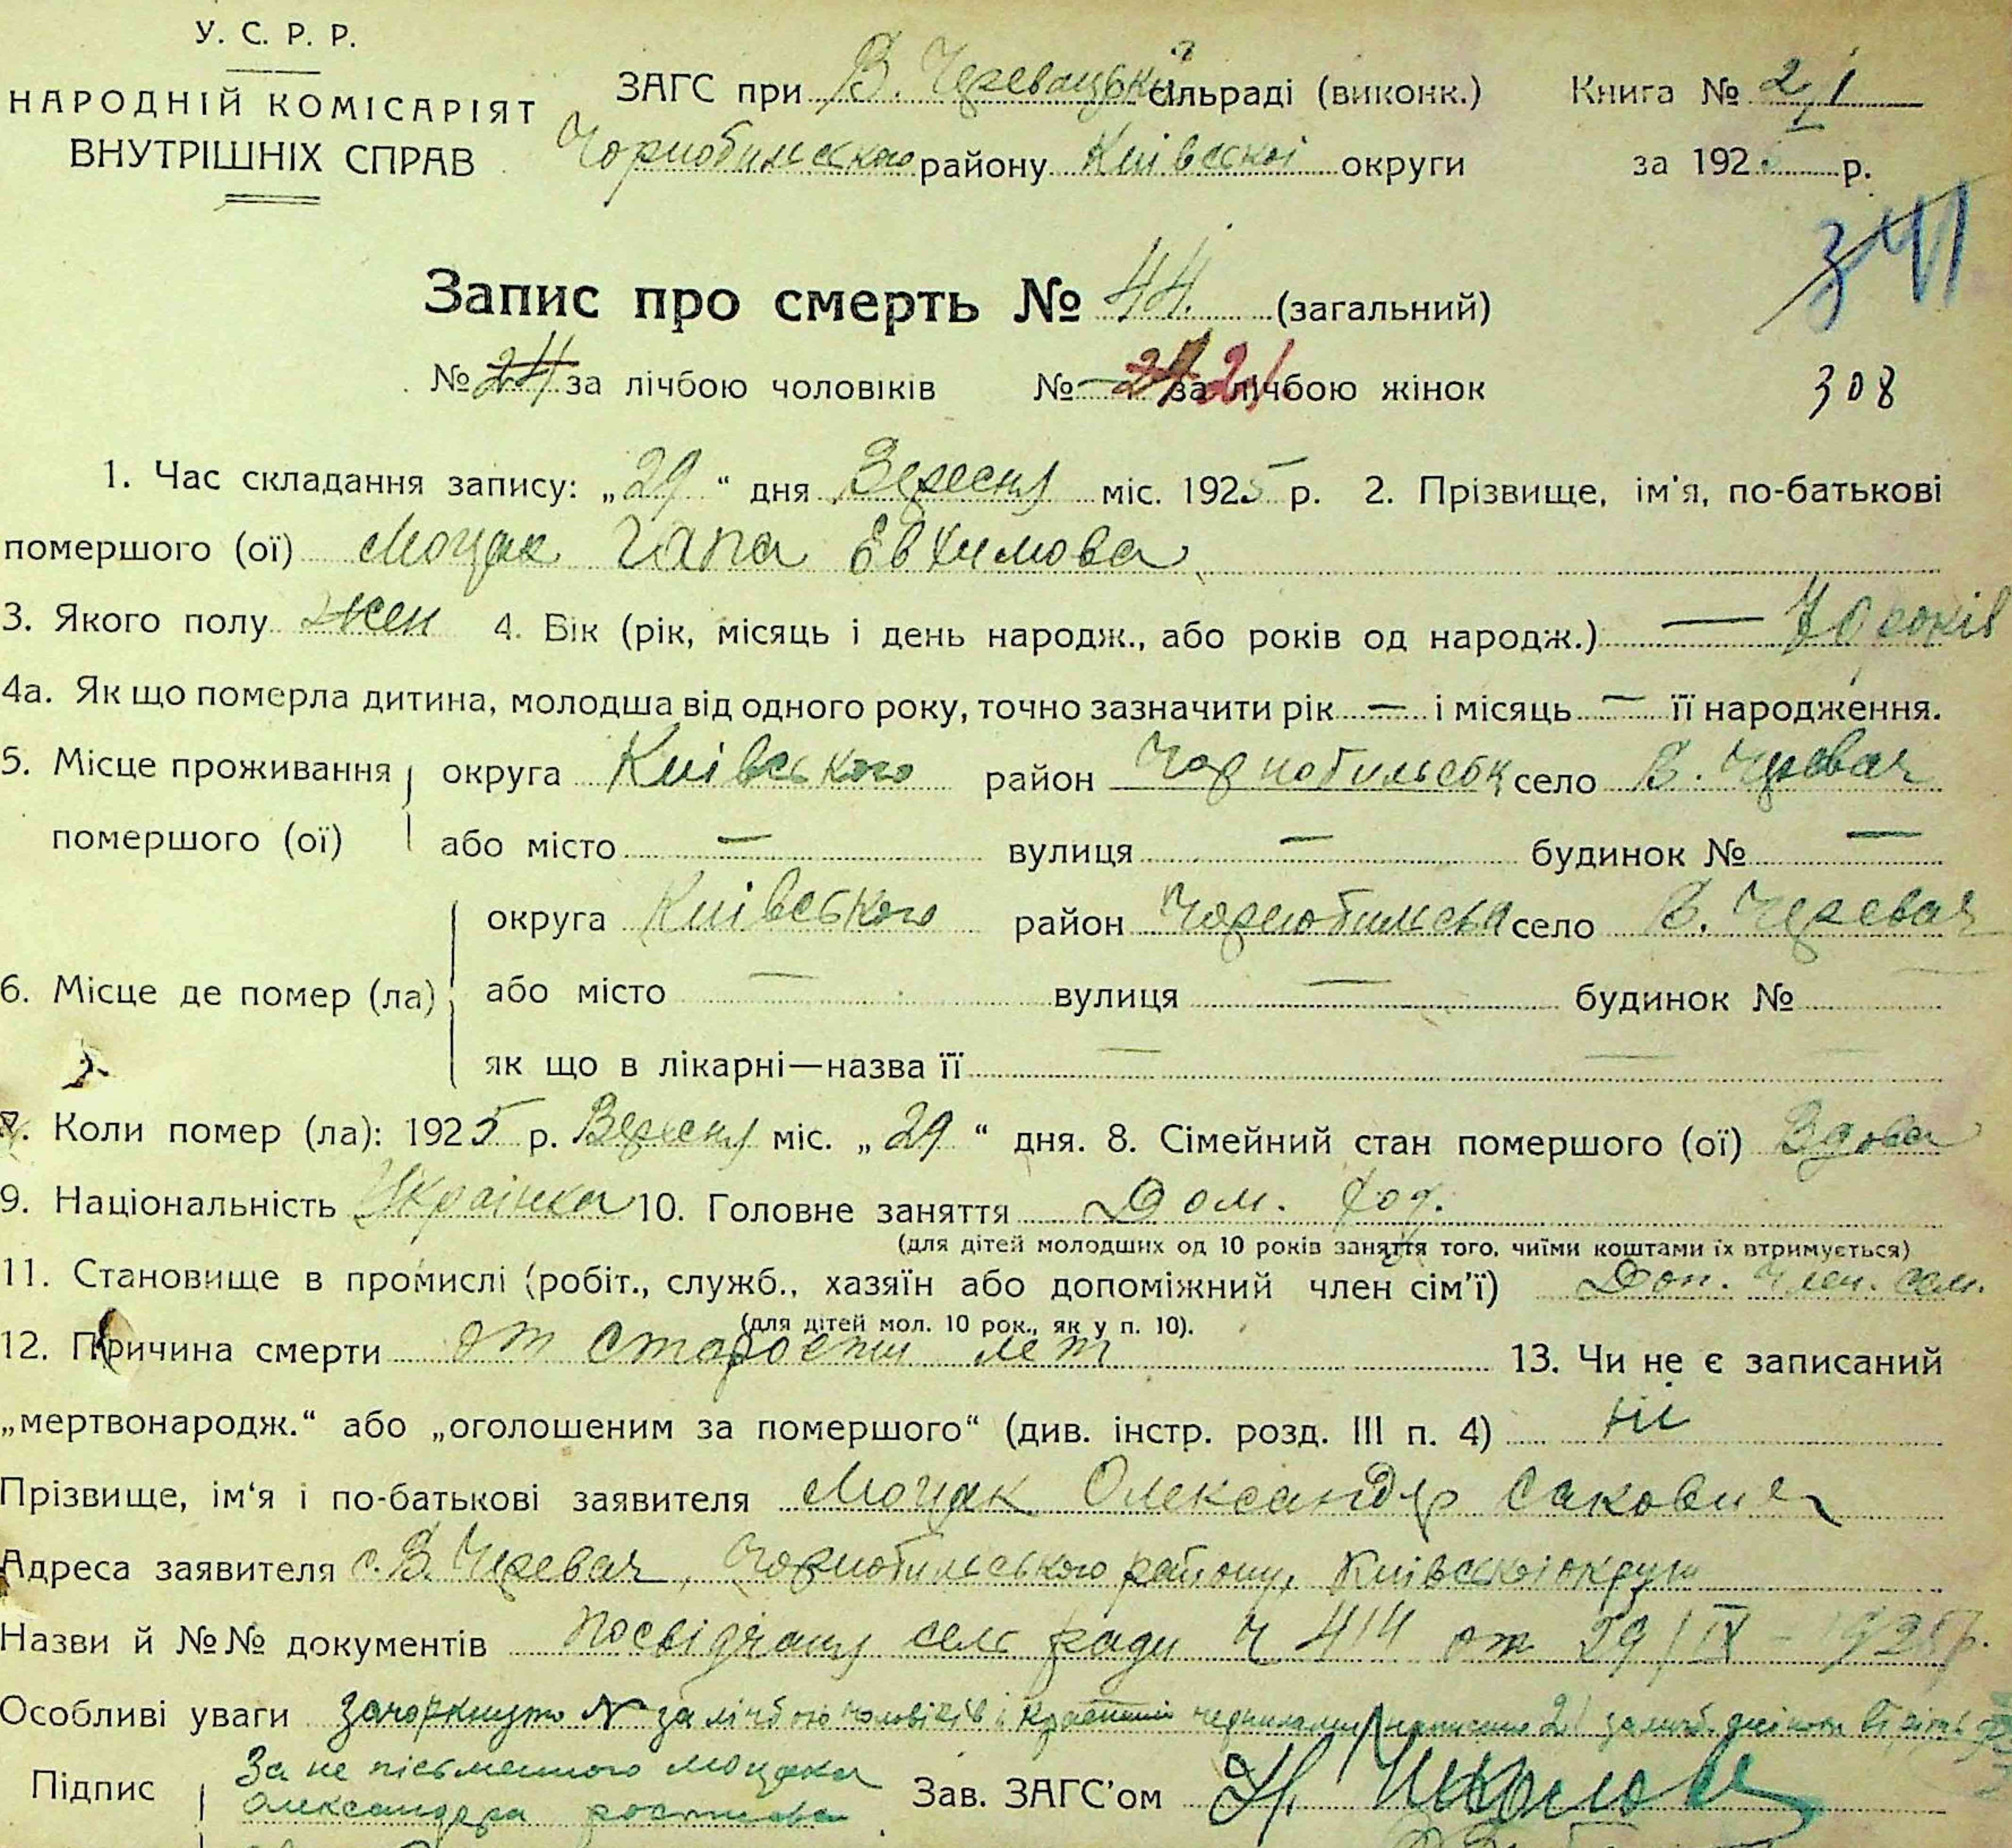 У. С. Р. Р.
НАРОДНІЙ КОМІСАРІЯТ
ВНУТРІШНІХ СПРАВ
ЗАГС при В. Черевацькій сільраді (виконк.)
Чорнобильського району Київської округи
Книга № 2/1
за 192 р.
341
Запис про смерть № 44. (загальний)
№ 24 за лічбою чоловіків № 21 за лічбою жінок
308
1. Час складання запису: „29“ дня Вересня міс. 1925 р. 2. Прізвище, ім'я, по-батькові
помершого (ої) Моцак Гапа Евхимова
3. Якого полу жен 4. Вік (рік, місяць і день народж., або років од народж.) — 70 років
4а. Як що померла дитина, молодша від одного року, точно зазначити рік — і місяць — її народження.
5. Місце проживання помершого (ої) округа Київського район Чорнобильськ село В. Черевач
або місто — вулиця — будинок № —
6. Місце де помер (ла) округа Київського район Чорнобильськ село В. Черевач
або місто — вулиця — будинок №
як що в лікарні—назва її —
7. Коли помер (ла): 1925 р. Вересня міс. „29“ дня. 8. Сімейний стан помершого (ої) Вдова
9. Національність Українка 10. Головне заняття Дом. Год.
(для дітей молодших од 10 років заняття того, чиїми коштами їх втримується)
11. Становище в промислі (робіт., служб., хазяїн або допоміжний член сім'ї) Доп. член. сем.
(для дітей мол. 10 рок., як у п. 10).
12. Причина смерти от старости лет 13. Чи не є записаний
„мертвонародж.“ або „оголошеним за помершого“ (див. інстр. розд. III п. 4) ні
Прізвище, ім'я і по-батькові заявителя Моцак Олександр Сакович
Адреса заявителя с. В. Черевач, Чорнобильського району, Київської округи
Назви й №№ документів посвідчаня сель ради Ч 414 от 29/IX – 1925 р.
Особливі уваги Зачоркнуто № за лічбою чоловіків і красними чернилами написано 21 за лічб. жінок
Підпис За не письменного Моцака
Олександра
Зав. ЗАГС'ом